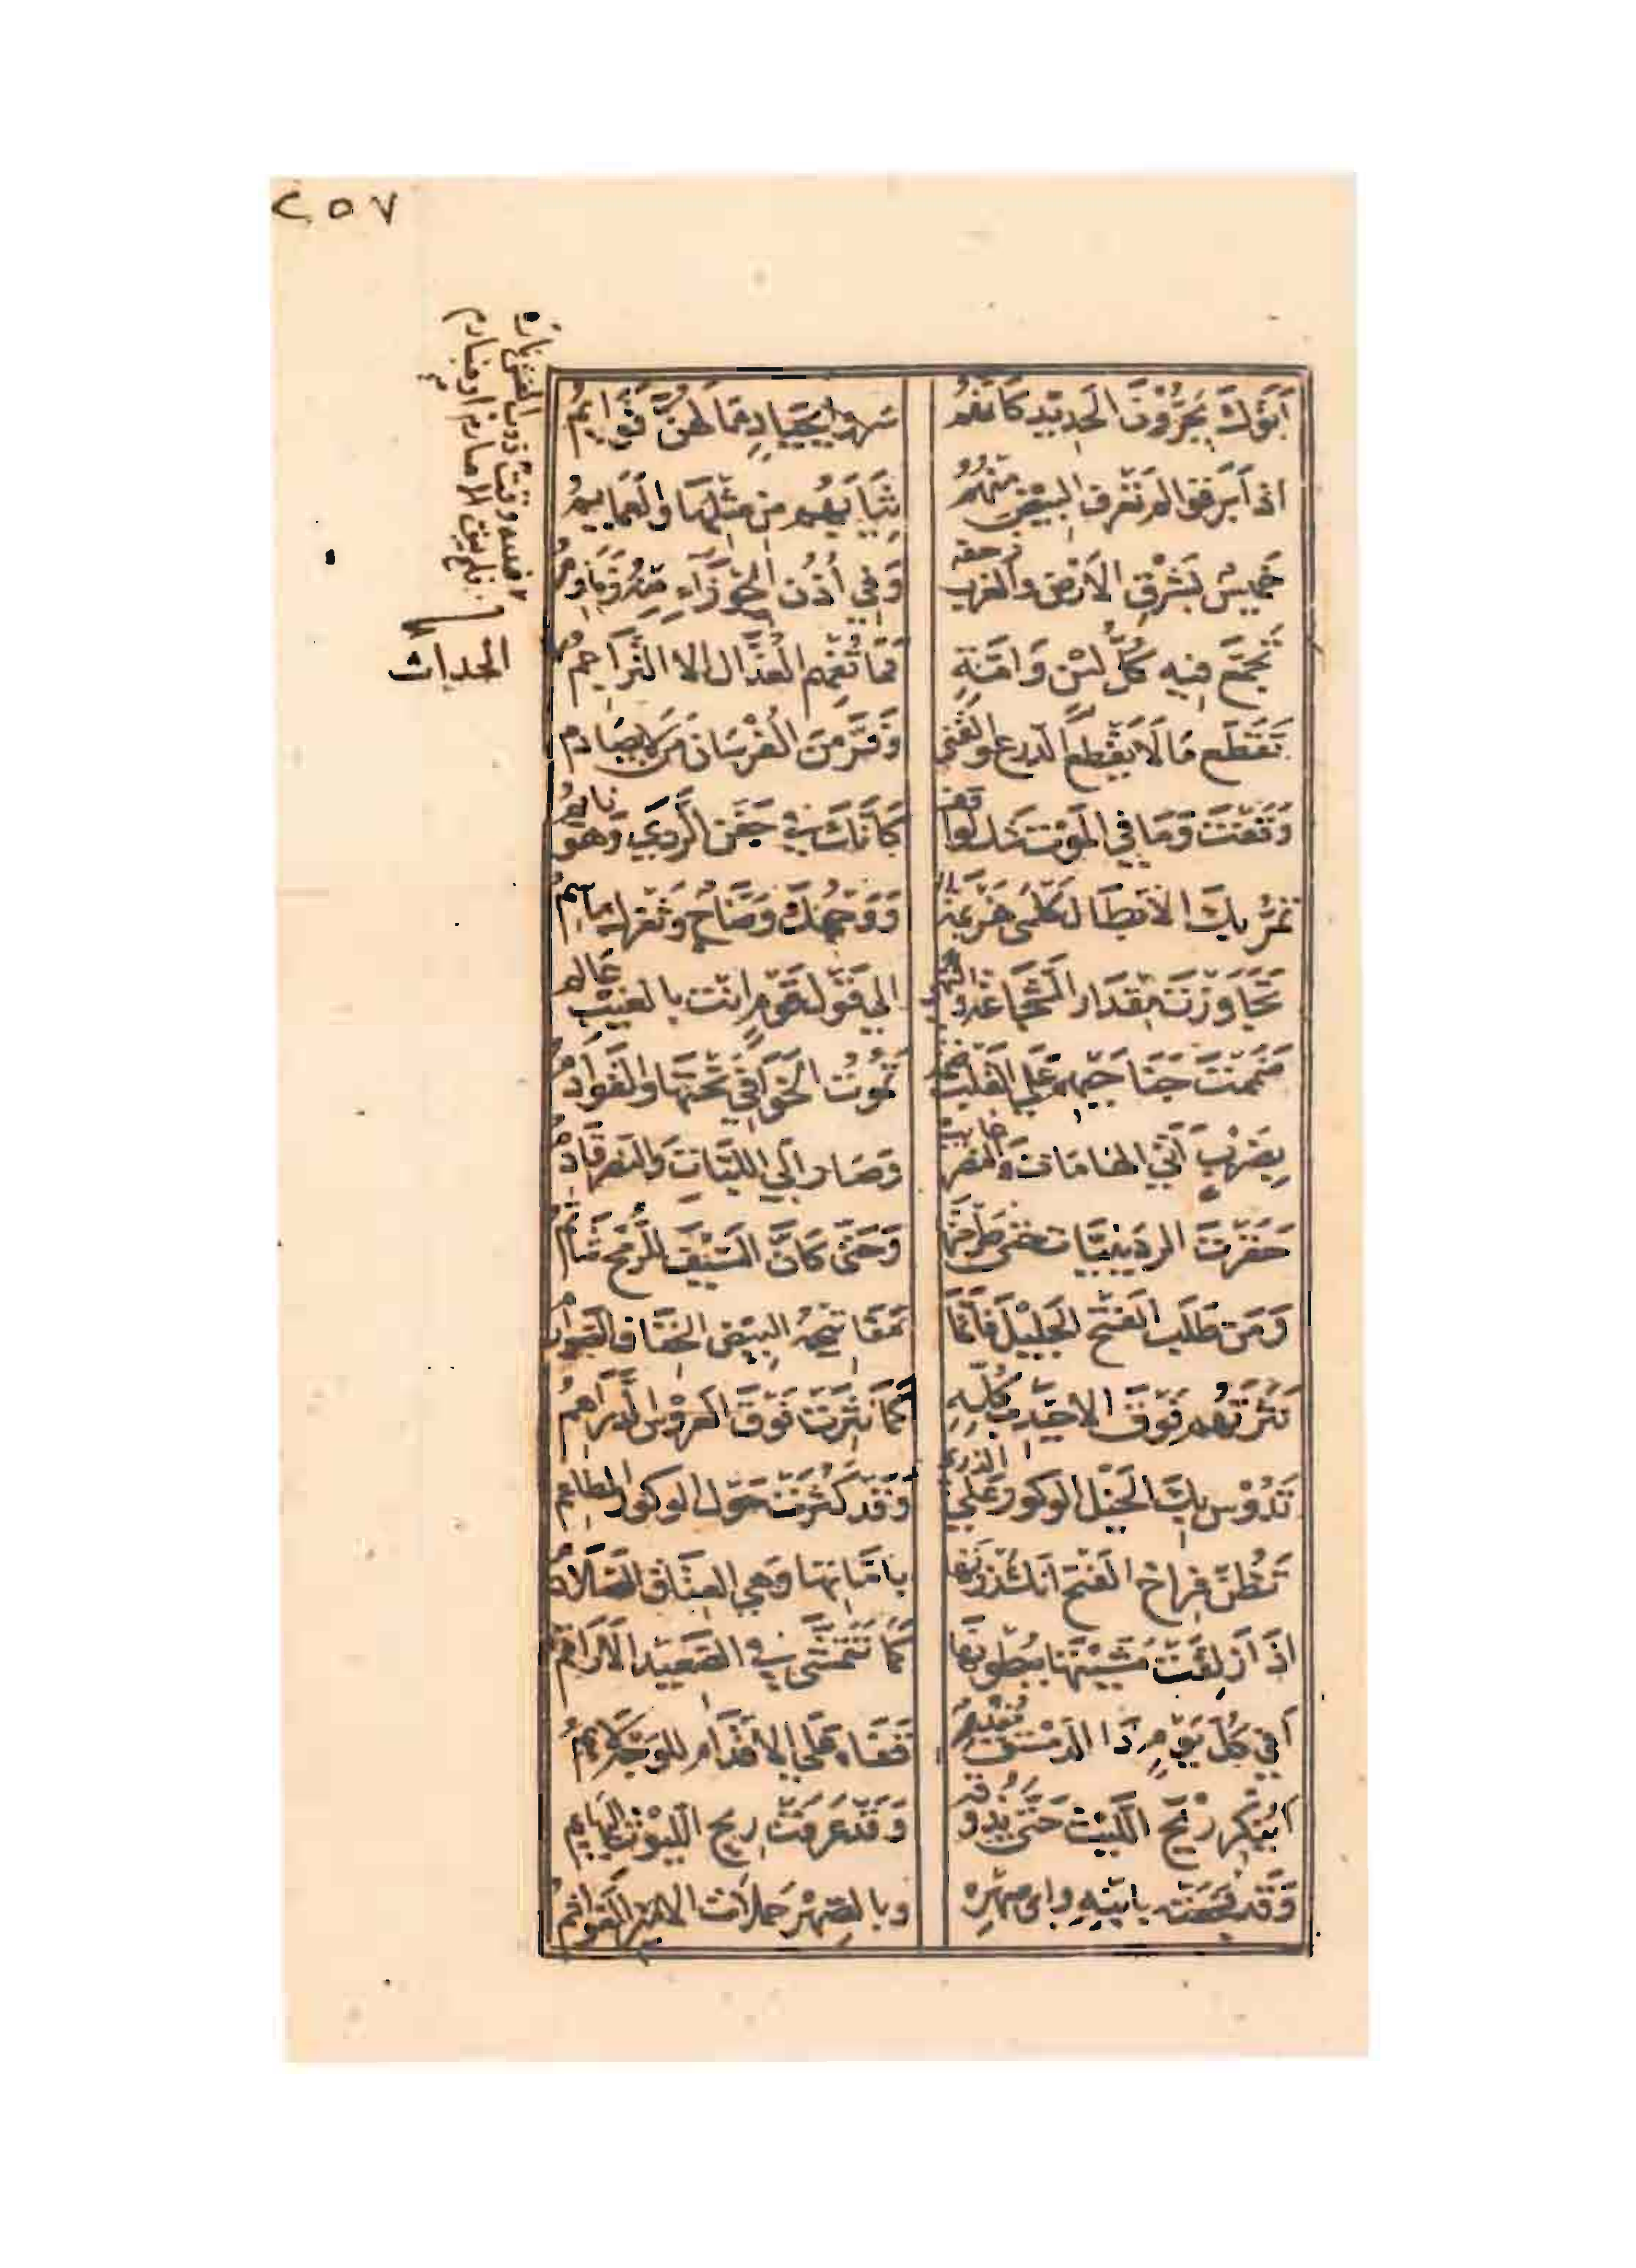 ٢٥٧
أتوك يجرون الحديد كأنهم سروا بجياد ما لهن قوايم
اذا أبرقوا لم تعرف البيض منهم ثيابهم من مثلها والعمايم
خميس بشرق الارض والغرب زحفه وفي أذن الجوزاء منه زمازم
تجمع فيه كل لسن وامة فما تفهم العذال الا التراجم
الحداث
فلله وقت ذوب الغش ناره فلم يبق الا صارم او ضبارم
تقطع ما لا يقطع الدرع والقنى وفر من الفرسان من لا يصادم
وقفت وما في الموت شك لواقف كأنك في جفن الردي وهو نايم
تمر بك الابطال كلمى هزيمة ووجهك وضاح وثغرك باسم
تجاوزت مقدار الشجاعة والنهى الي قول قوم انت بالغيب عالم
ضممت جناحيهم علي القلب ضمة تموت الخوافي تحتها والقوادم
بضرب أتي الهامات والنصر غايب وصار الي اللبات والنصر قادم
حقرت الردينيات حتى طرحتها وحتى كان السيف للرمح شاتم
ومن طلب الفتح الجليل فانما مفاتيحه البيض الخفاف الصوارم
نثرتهم فوق الاحيدب كله كما نثرت فوق العروس الدراهم
تدوس بك الخيل الوكور علي الذرى وقد كثرت حول الوكور المطاعم
تظن فراخ الفتح انك زرتها باماتها وهي العتاق الصلادم
اذا زلقت مشيتها ببطونها كما تتمشى في الصعيد الاراقم
أفي كل يوم ذا الدمستق مقدم قفاه علي الاقدام للوجه لايم
أينكر ريح الليث حتى يذوقه وقد عرفت ريح الليوث البهايم
وقد فجعته بابنه وابن صهره وبالصهر حملات الامير الغواشم